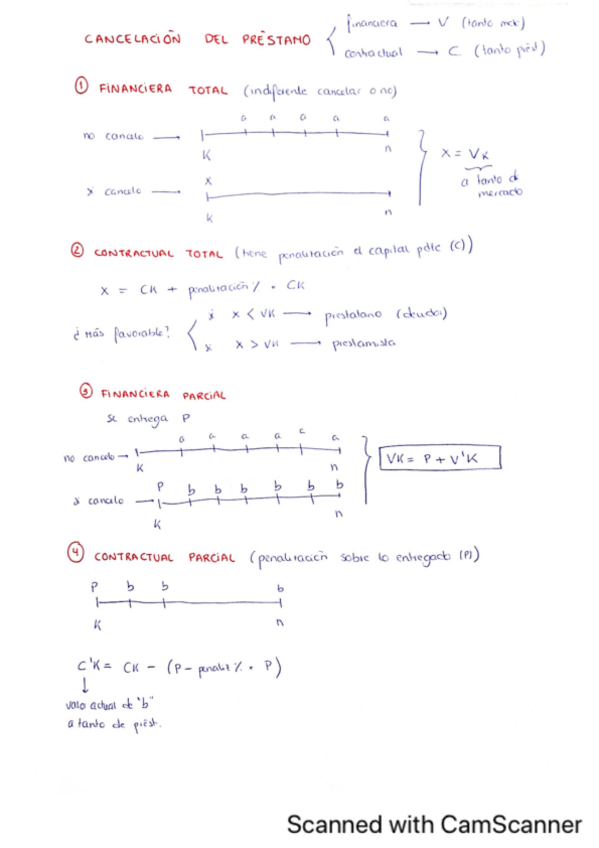 CANCELACIÓN DEL PRÉSTAMO
financiera → V (tanto mdo)
contractual → C (tanto prést)
① FINANCIERA TOTAL (indiferente cancelar o no)
a a a a a
no cancelo →
K n
X = VK
a tanto de mercado
X
si cancelo
K n
② CONTRACTUAL TOTAL (tiene penalización el capital pdte (C))
X = CK + penalización % · CK
¿Más favorable?
si X < VK → prestatario (deudor)
si X > VK → prestamista
③ FINANCIERA PARCIAL
se entrega P
a a a a c a
no cancelo →
K n
VK = P + V'K
P b b b b b b
si cancelo →
K n
④ CONTRACTUAL PARCIAL (penalización sobre lo entregado (P))
P b b b
K n
C'K = CK - (P - penaliz % · P)
↓
valor actual de "b"
a tanto de prést.
Scanned with CamScanner